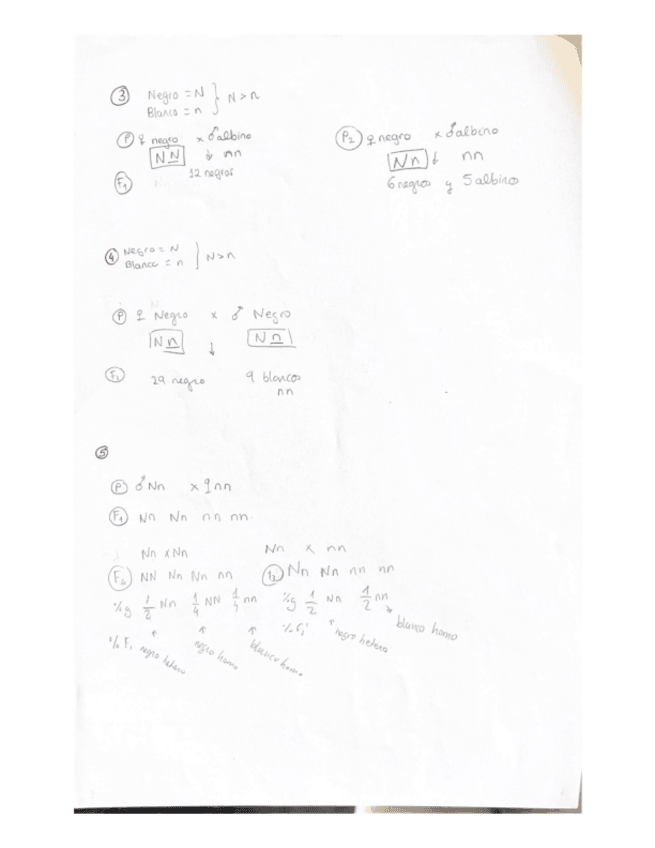 ③ Negro = N } N > n
Blanco = n
Ⓟ ♀ negro x ♂albino
NN ↓ nn
12 negros
F1
P2 ♀ negro x ♂albino
Nn ↓ nn
6 negros y 5 albino
④ Negro = N } N > n
Blanco = n
Ⓟ ♀ Negro x ♂ Negro
Nn ↓ Nn
F1 29 negro 9 blancos
nn
⑤
Ⓟ ♂ Nn x ♀ nn
F1 Nn Nn nn nn
Nn x Nn
F2 NN Nn Nn nn
%g 1/2 Nn 1/4 NN 1/4 nn
% F, negro hetero negro homo blanco homo
Nn x nn
Nn Nn nn nn
%g 1/2 Nn 1/2 nn
% F, negro hetero blanco homo